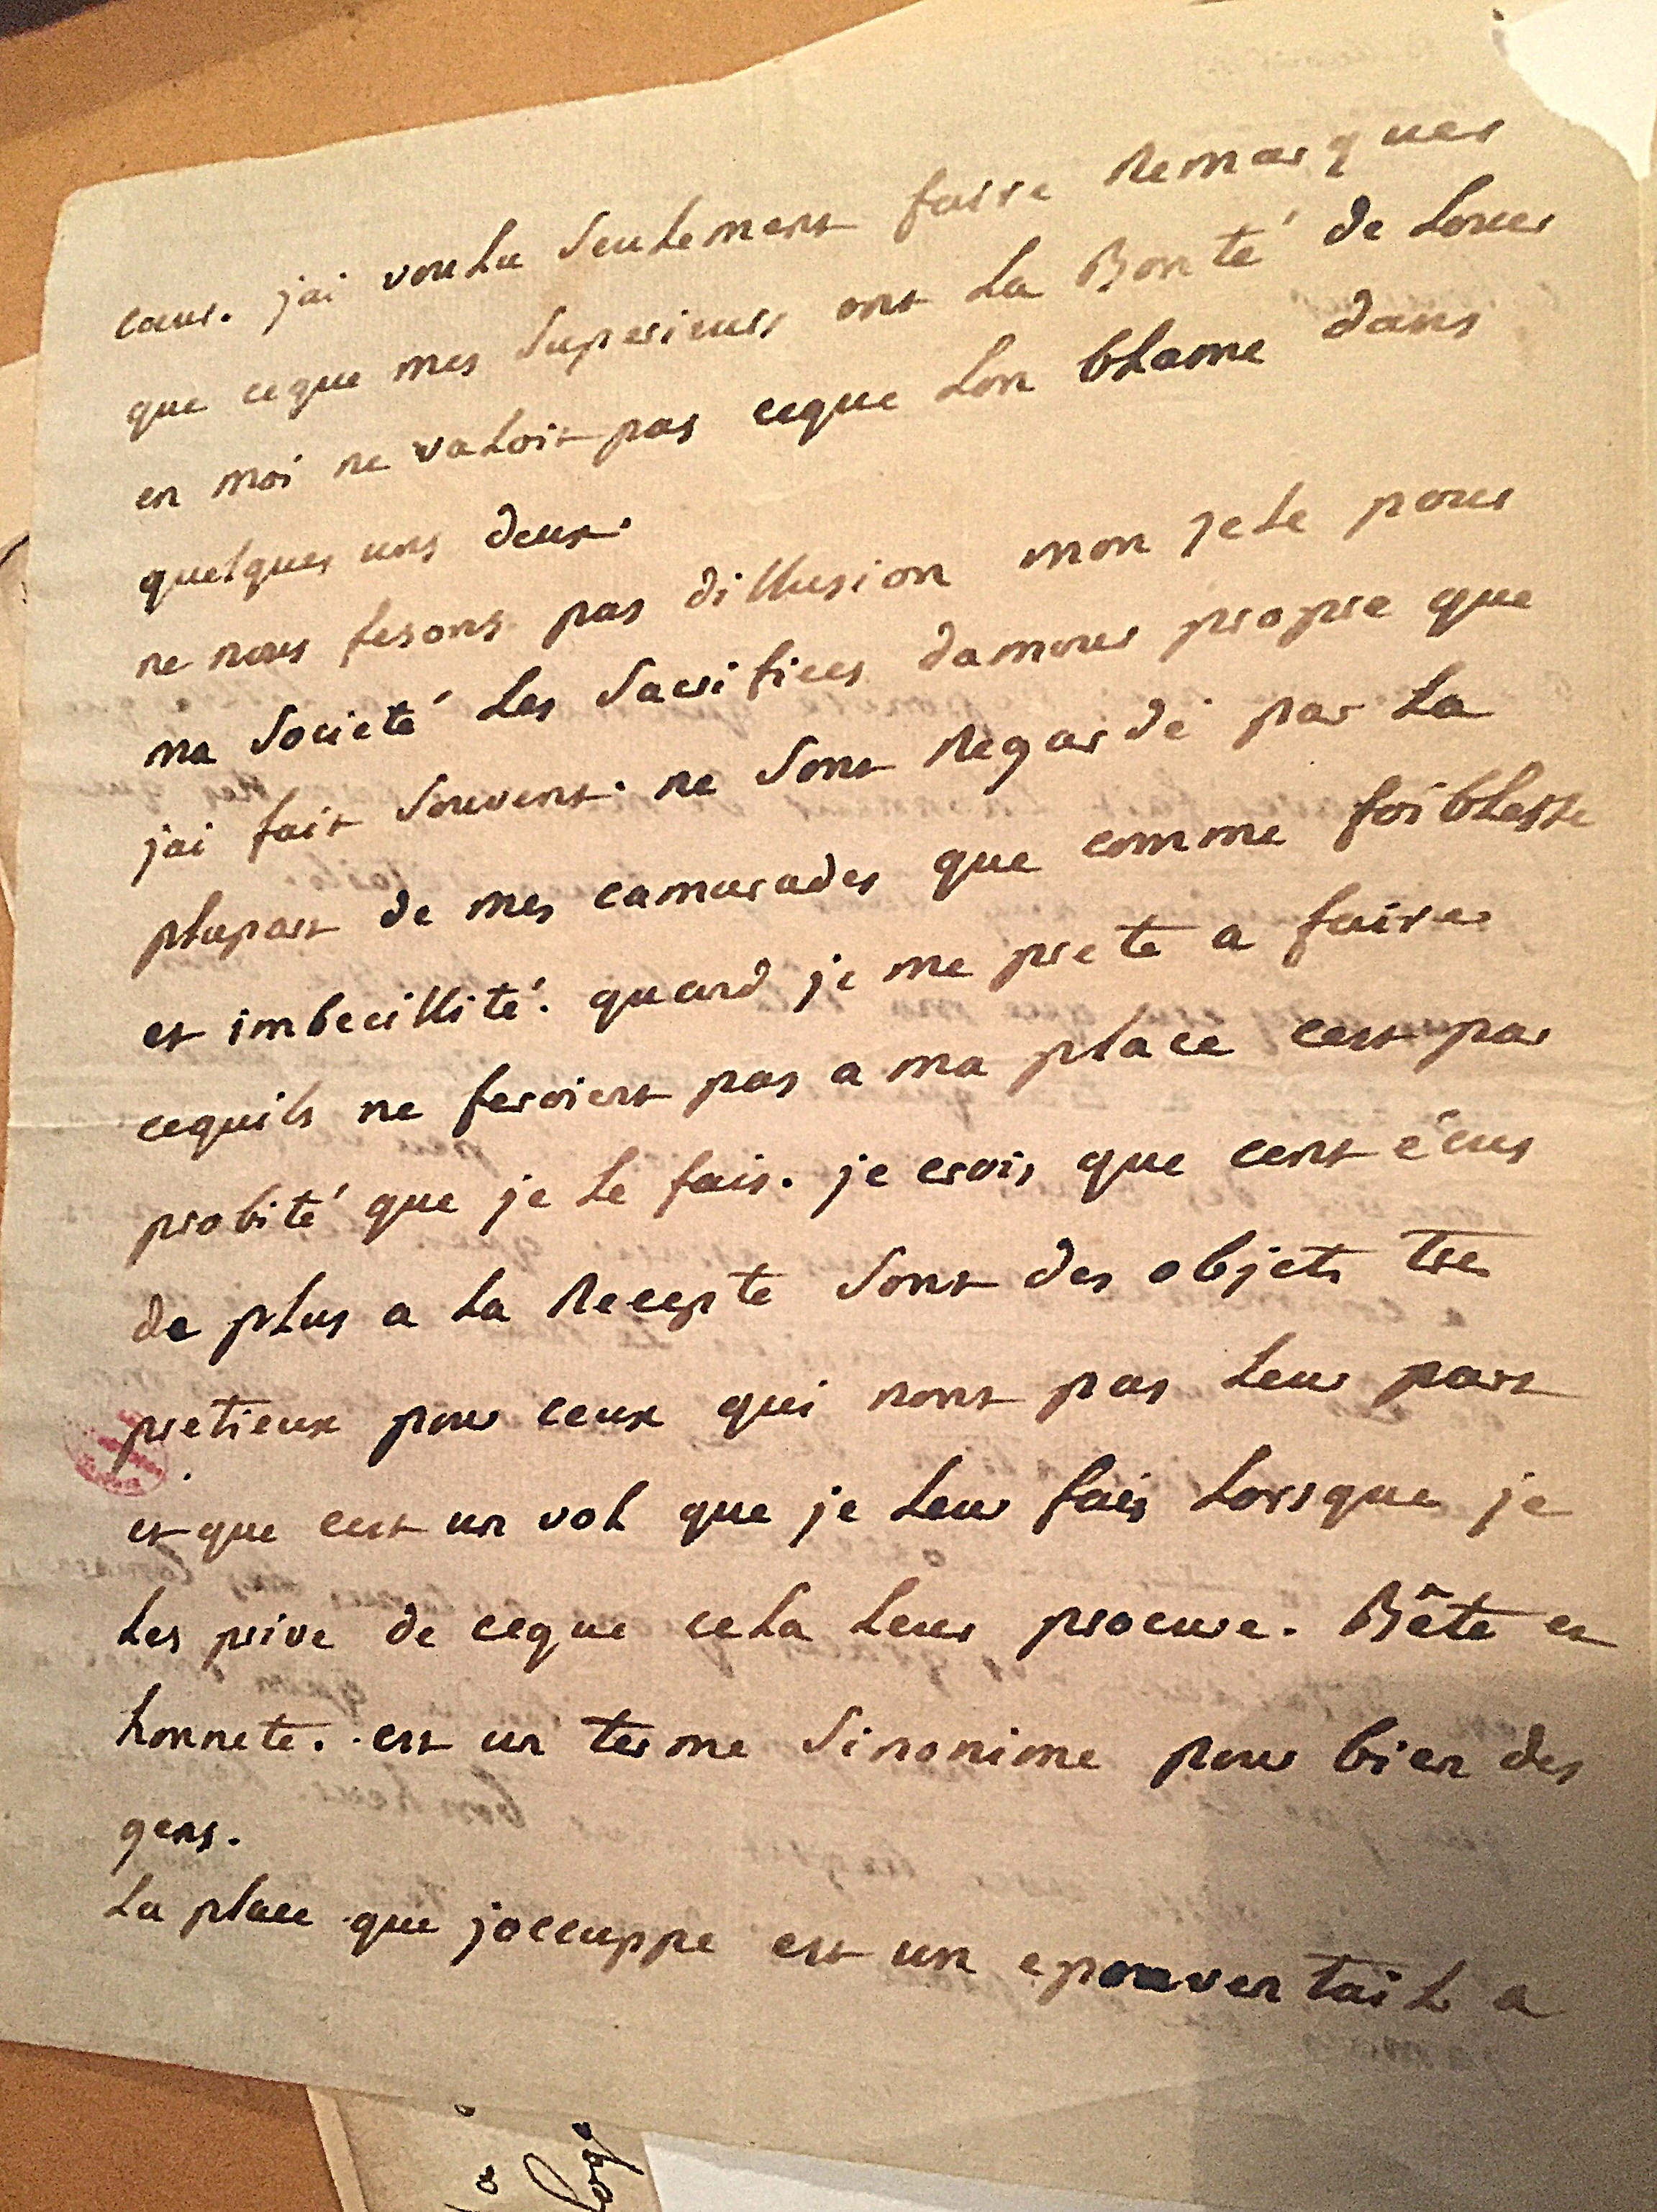 cœur. jai voulu seulement faire remarquer
que ceque mes superieurs ont la Bonté de louer
en moi ne valoit pas ceque lon blame dans
quelques uns deux.
ne nous fesons pas dillusion mon zele pour
ma societé les sacrifices damour propre que
jai fait souvent. ne sont regardé par la
plupart de mes camarades que comme foiblesse
et imbecillité. quand je me prete a faire
cequils ne feroient pas a ma place cest par
probité que je le fais. je crois que cent écus
de plus a la recepte sont des objets tres
pretieux pour ceux qui nont pas leur part
et que cest un vol que je leur fais lorsque je
les prive de ceque cela leur procure. Bête et
honnete. est un terme sinonime pour bien des
gens.
la place que joccuppe est un epouventail a